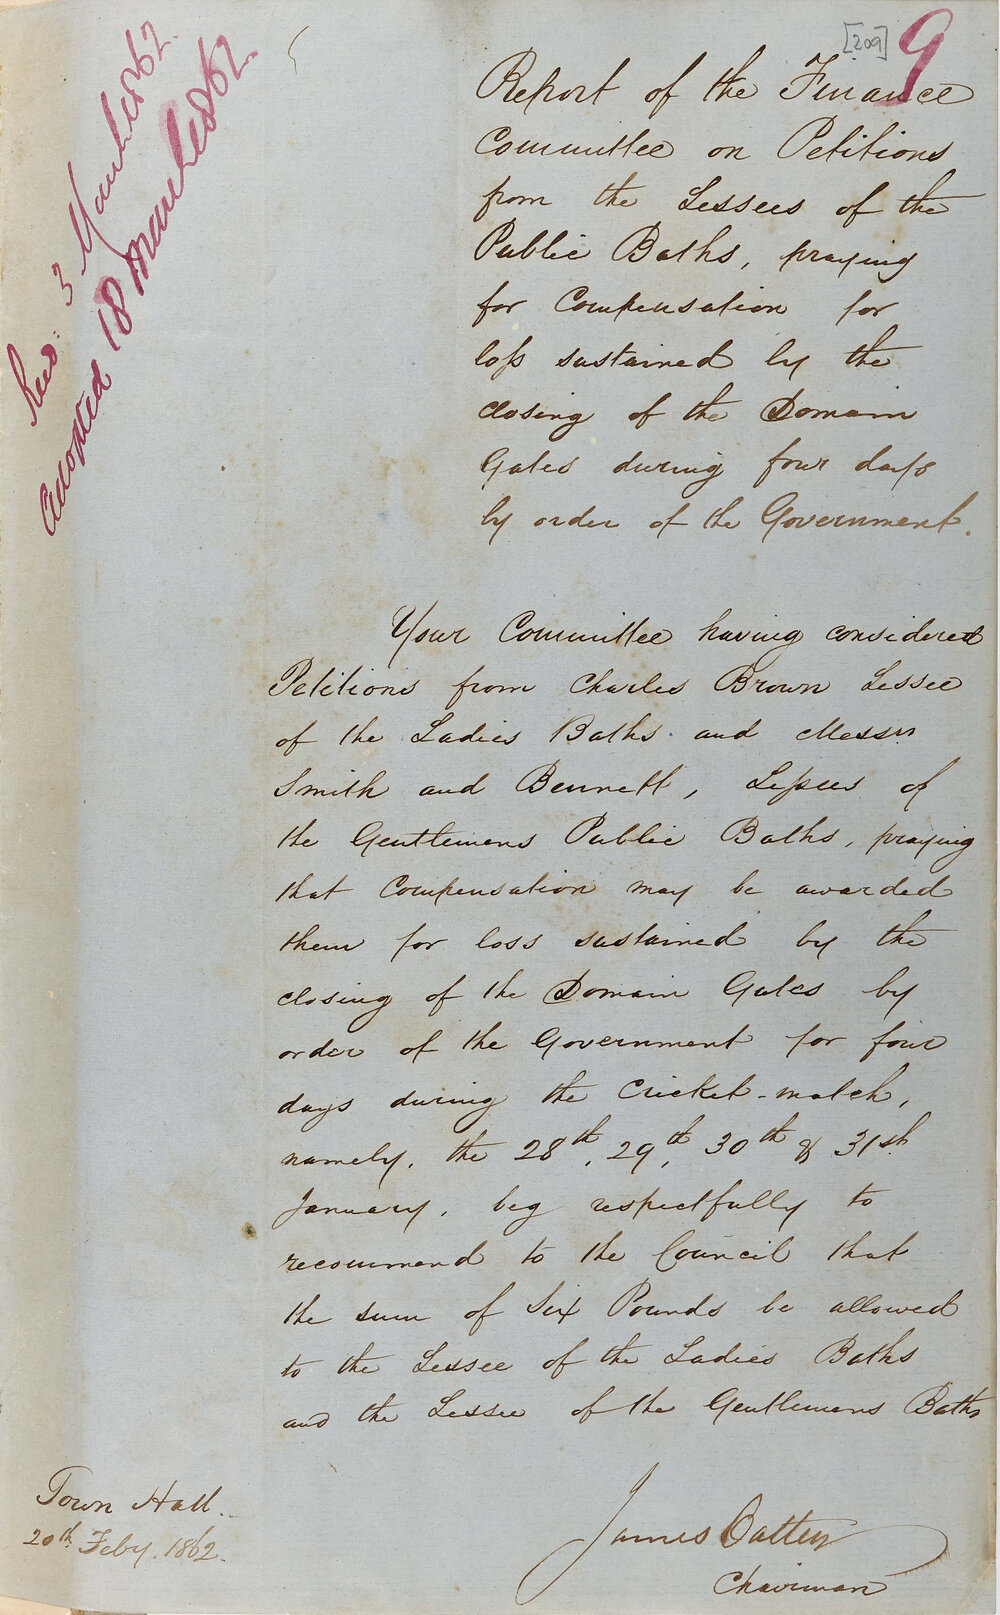 [209]
9
Recd. 3 March 1862.
Adopted 18 March 1862.
Report of the Finance
Committee on Petitions
from the Lessees of the
Public Baths, praying
for Compensation for
loss sustained by the
closing of the Domain
Gates during four days
by order of the Government.
Your Committee having considered
Petitions from Charles Brown Lessee
of the Ladies Baths and Messrs
Smith and Bennett, Lessees of
the Gentlemens Public Baths, praying
that Compensation may be awarded
them for loss sustained by the
closing of the Domain Gates by
order of the Government for four
days during the Cricket-match,
namely, the 28th, 29th, 30th & 31st
January, beg respectfully to
recommend to the Council that
the sum of Six Pounds be allowed
to the Lessee of the Ladies Baths
and the Lessee of the Gentlemens Baths
Town Hall.
20th Feby. 1862.
James Oatley
Chairman